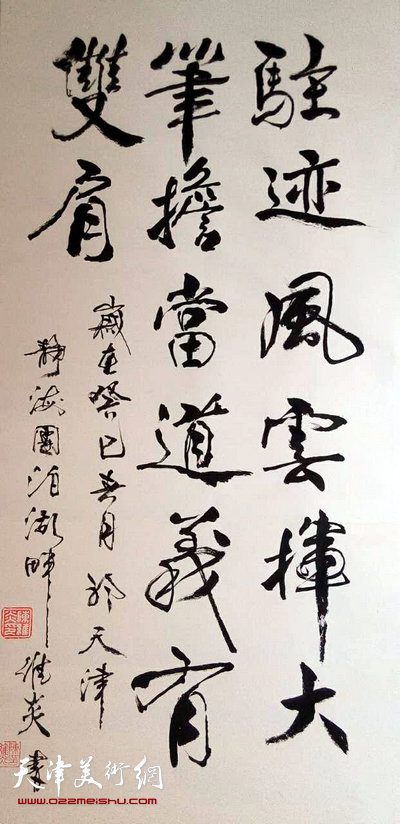 駐迹風雲揮大
筆擔當道義有
雙肩
歲在癸巳年月於天津
靜海團泊湖畔
維炎書
天津美術網
www.022meishu.com